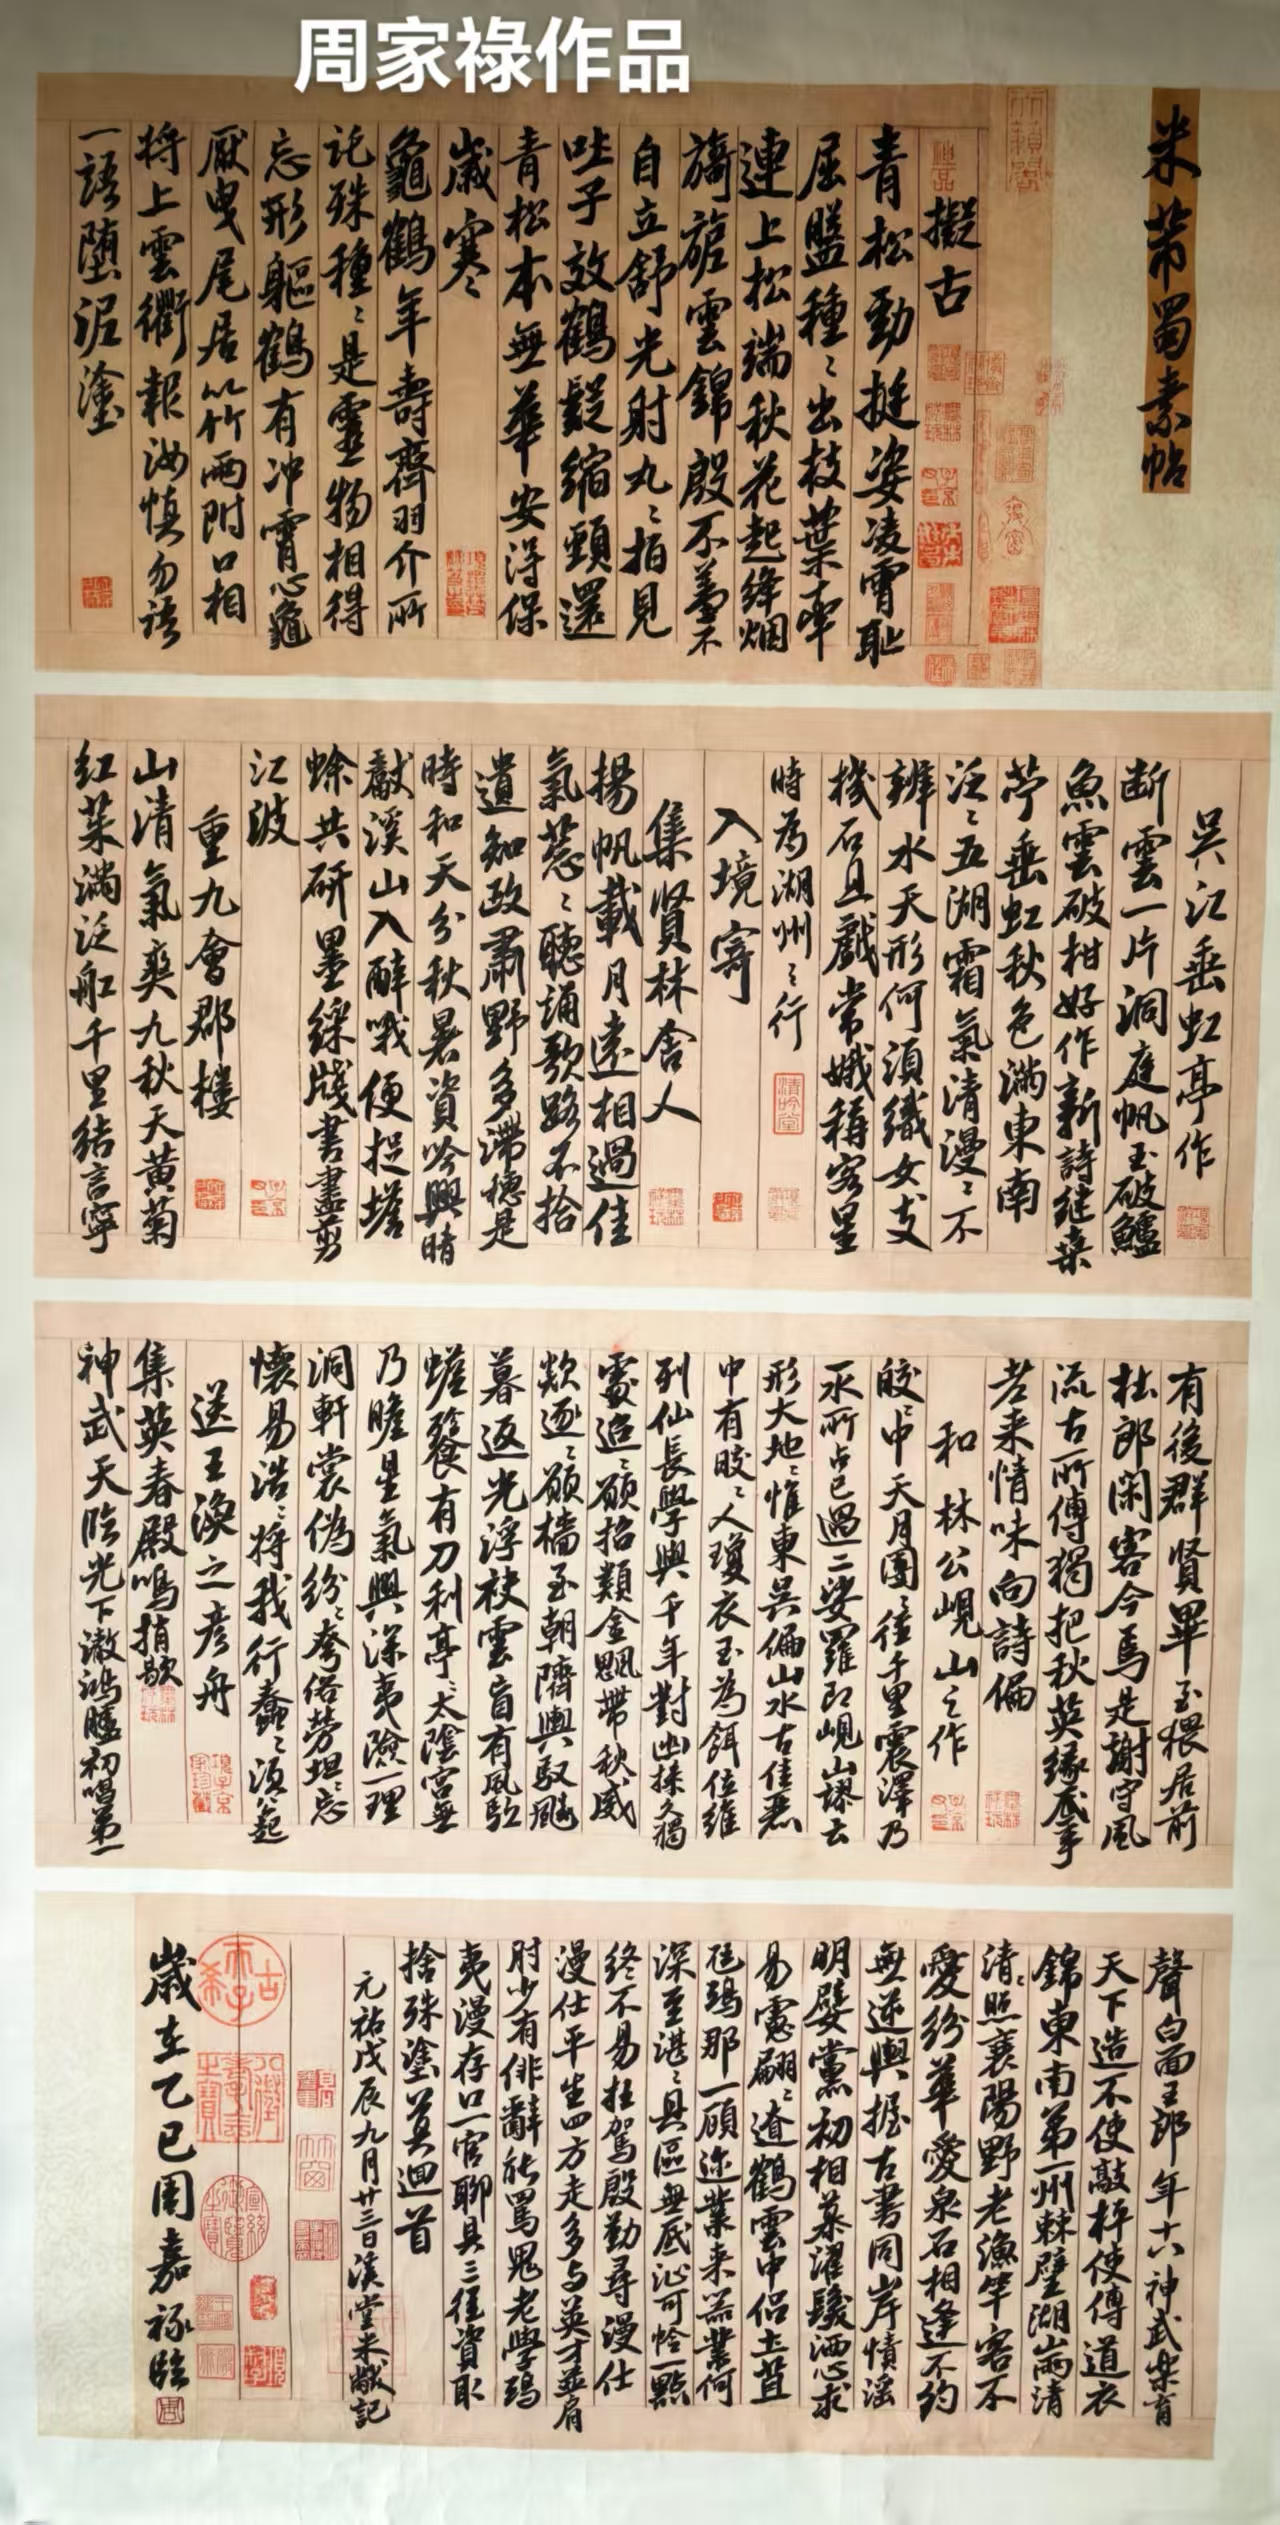 周家祿作品
米芾蜀素帖
擬古
青松勁挺姿凌霄恥
屈盤種〻出枝葉牽
連上松端秋花起絳烟
旖旎雲錦殷不羞不
自立舒光射丸〻柏見
吐子效鶴疑縮頸還
青松本無華安得保
歲寒
龜鶴年壽齊羽介所
託殊種〻是靈物相得
忘形軀鶴有冲霄心龜
厭曳尾居以竹兩附口相
將上雲衢報汝慎勿語
一語墮泥塗
吳江垂虹亭作
断雲一片洞庭帆玉破鱸
魚雲破柑好作新詩继桑
苧垂虹秋色滿東南
泛〻五湖霜氣清漫〻不
辨水天形何須織女支
機石且戲常娥稱客星
時為湖州之行
入境寄
集賢林舍人
揚帆載月遠相過佳
氣葱〻聽誦歌路不拾
遺知政肅野多滯穗是
時和天分秋暑資吟興晴
獻溪山入醉哦便捉蟾
蜍共研墨綵牋書盡剪
江波
重九會郡樓
山清氣爽九秋天黄菊
紅茱滿泛船千里結言寧
有後群賢畢至猥居前
杜郎閑客今焉是謝守風
流古所傳獨把秋英緣底事
老来情味向詩偏
和林公峴山之作
皎〻中天月團〻徑千里震澤乃
一水所占已過二娑羅即峴山謬云
形大地〻惟東吳偏山水古佳麗
中有皎〻人瓊衣玉為餌位維
列仙長學與千年對幽操久獨
處迢〻願招類金颸帶秋威
欻逐〻願檣至朝隮輿馭飈
暮返光浮袂雲盲有風馭
蟾餮有刀利亭〻太陰宮無
乃瞻星氣興深夷險一理
洞軒裳偽紛〻夸俗勞坦〻忘
懷易浩〻將我行蠢〻須公起
送王渙之彦舟
集英春殿鳴捎歇
神武天臨光下澈鴻臚初唱第一
聲白面王郎年十八神武樂育
天下造不使敲枰使傳道衣
錦東南第一州棘璧湖山兩清
清〻照襄陽野老漁竿客不
愛紛華愛泉石相逢不約
無逆與握古書同岸幘滛
明嬖黨初相慕濯髮洒心求
易慮翩〻遼鶴雲中侣土苴
尪鴟那一顧迩業来器業何
深至湛〻具區無底沚可怜一點
終不易枉駕殷勤尋漫仕
漫仕平生四方走多与英才並肩
肘少有俳辭能罵鬼老學鴟
夷漫存口一官聊具三徑資取
捨殊塗莫迴首
元祐戊辰九月廿三日溪堂米黻記
歲在乙巳周嘉祿臨